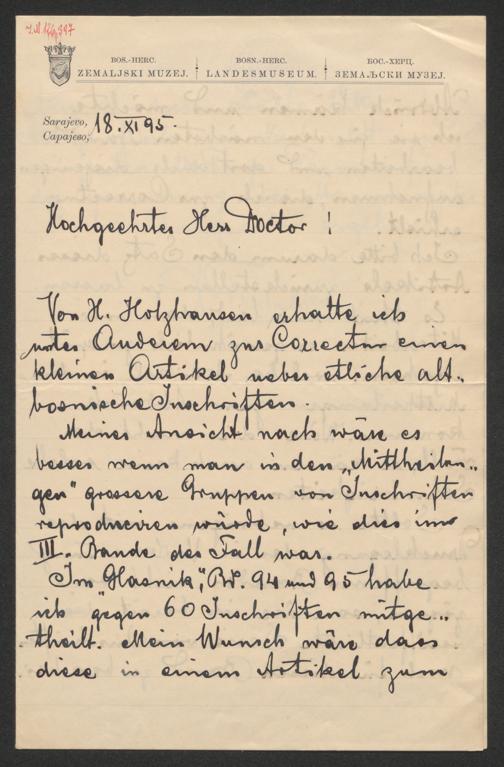 J.N. 176.397
BOS.-HERC. ZEMALJSKI MUZEJ.
BOSN.-HERC. LANDESMUSEUM.
БОС.-ХЕРЦ. ЗЕМАЉСКИ МУЗЕЈ.
Sarajevo, 18.XI 95.
Сарајево,
Hochgeehrter Herr Doctor !
Von H. Holzhausen erhalte ich
unter Anderem zur Correctur einen
kleinen Artikel ueber etliche alt-
bosnische Inschriften.
Meiner Ansicht nach wäre es
besser wenn man in den „Mittheilun-
gen" grossere Gruppen von Inschriften
reproducieren würde, wie dies im
III. Bande der Fall war.
Im „Glasnik", Bd. 94 und 95 habe
ich gegen 60 Inschriften mitge-
theilt. Mein Wunsch wäre dass
diese in einem Artikel zum